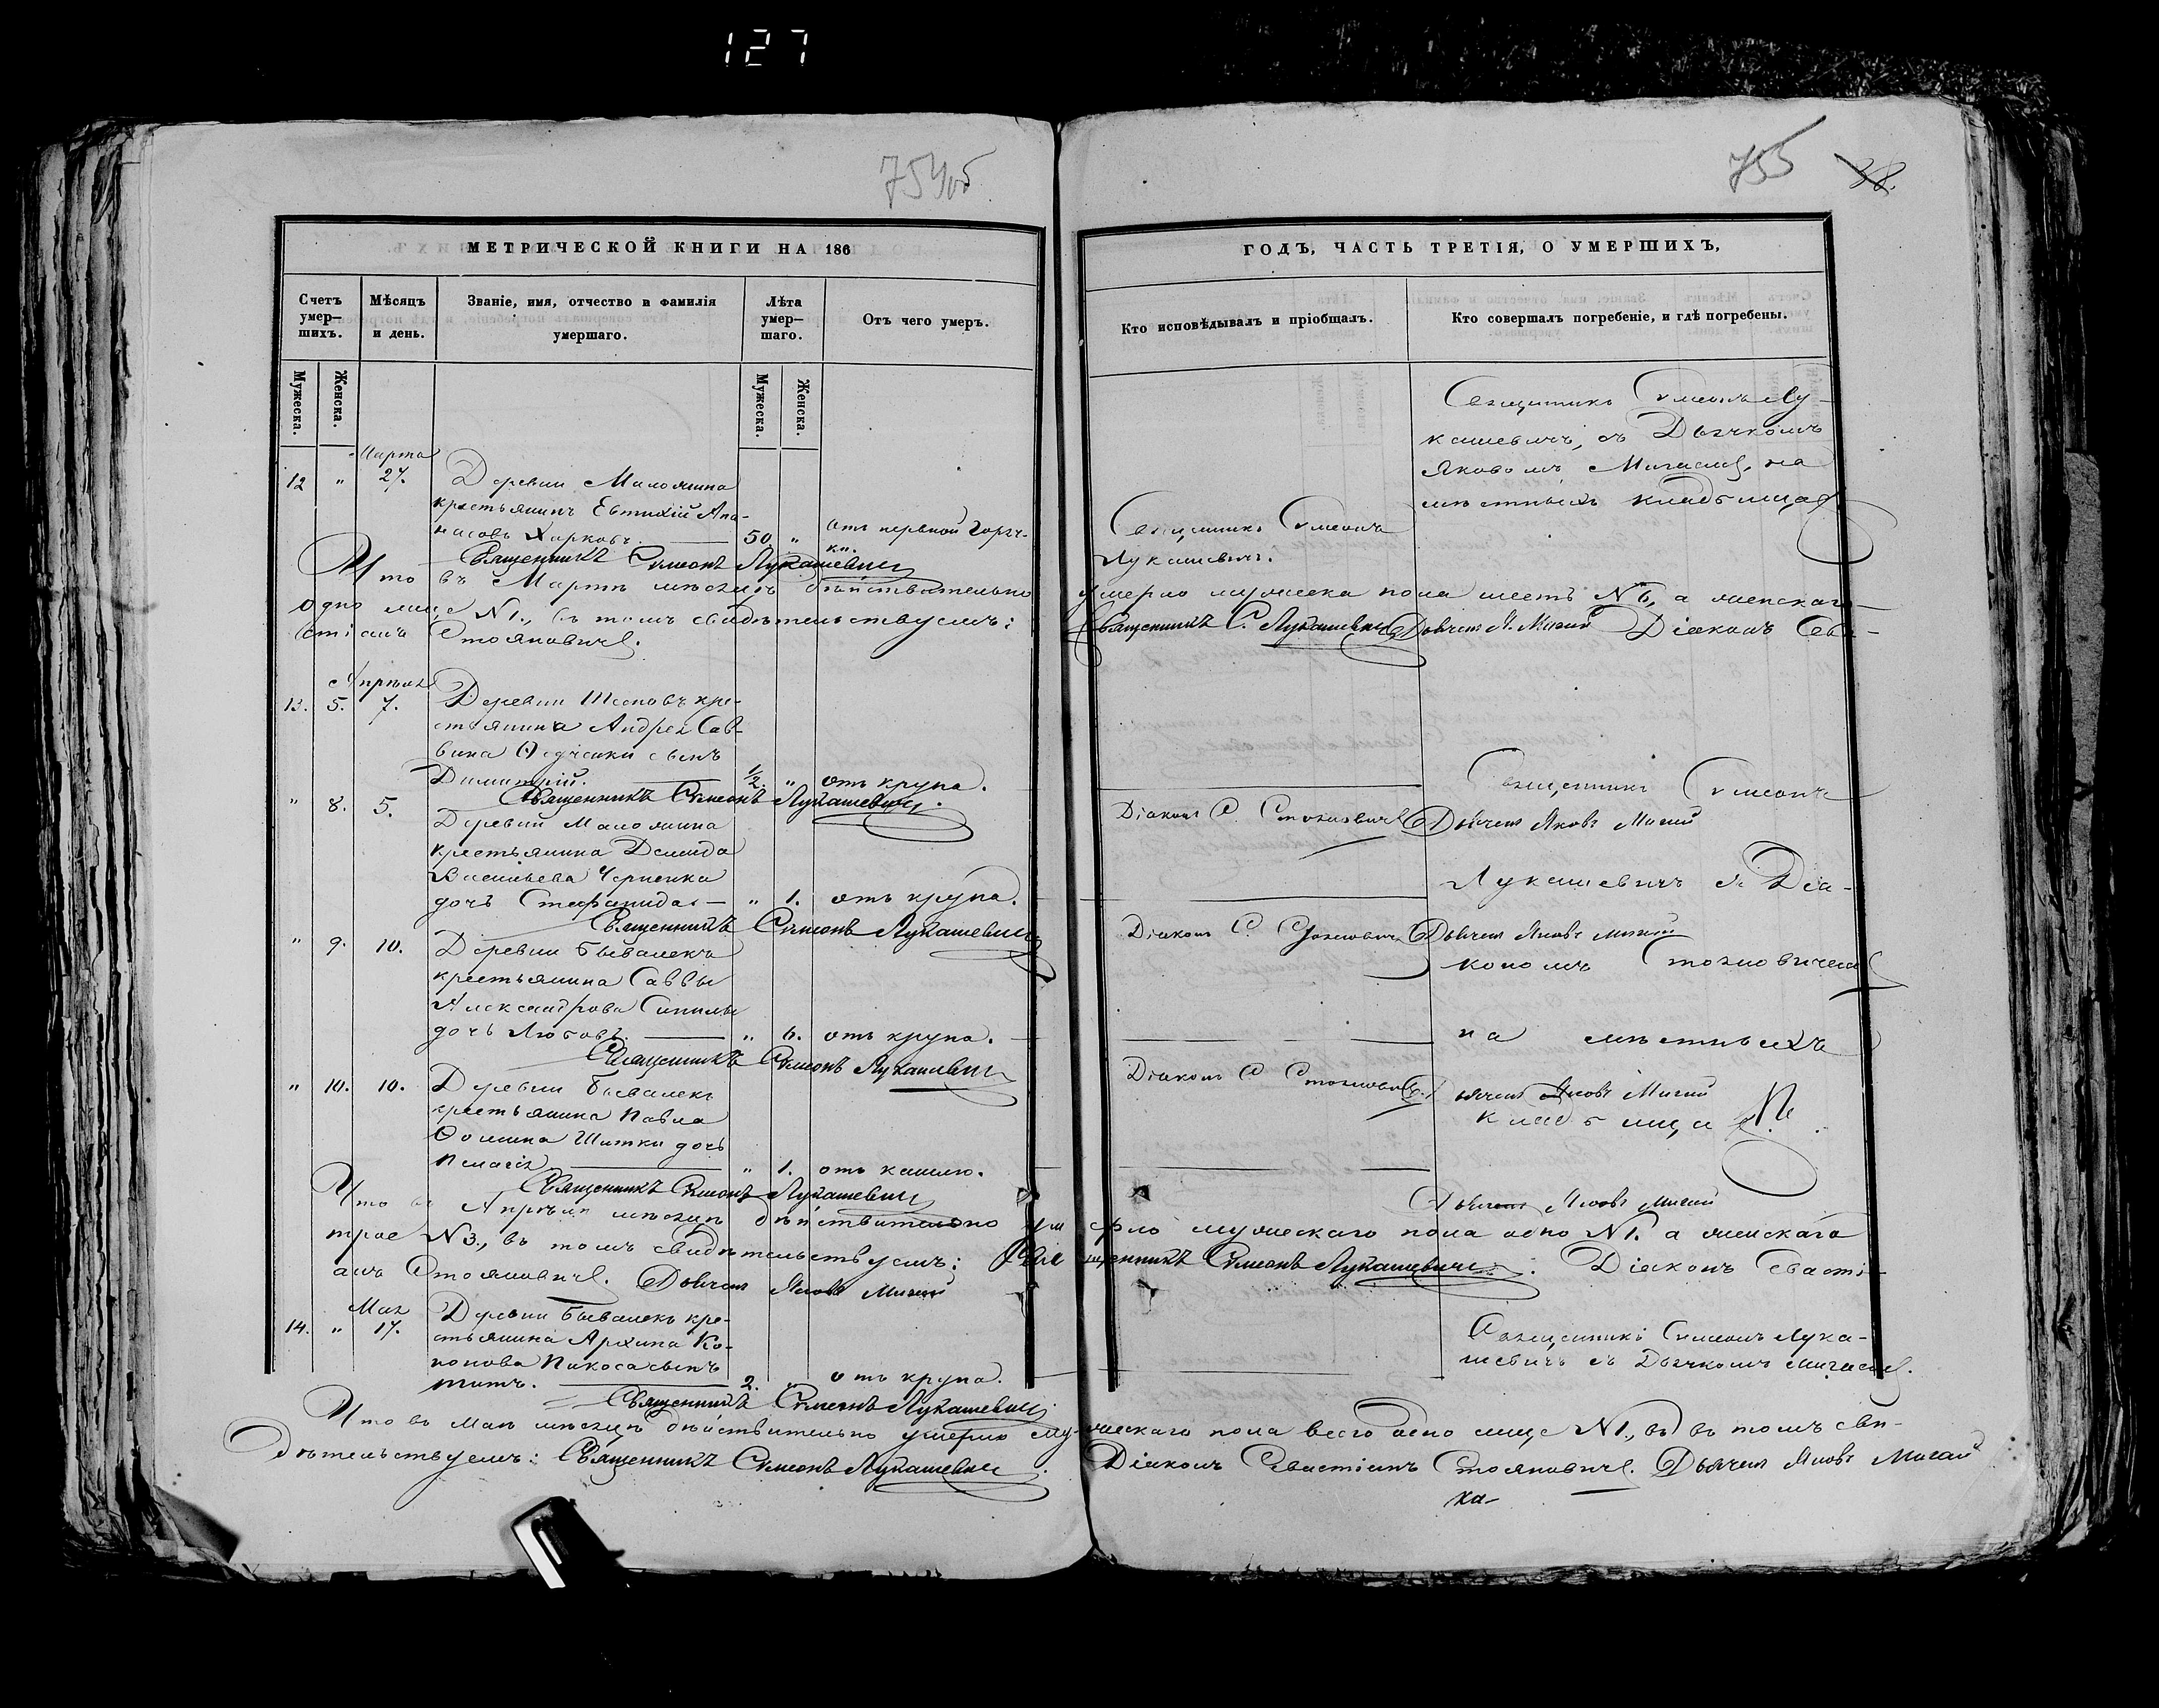 127
754об
755
38.
МЕТРИЧЕСКОЙ КНИГИ НА 186
ГОДЪ, ЧАСТЬ ТРЕТІЯ, О УМЕРШИХЪ,
Счетъ умер—шихъ.
Мѣсяцъ и день.
Званіе, имя, отчество и фамилія умершаго.
Лѣта умер—шаго.
Отъ чего умеръ.
Кто исповѣдывалъ и пріобщалъ.
Кто совершалъ погребеніе, и гдѣ погребены.
Мужеска.
Женска.
Мужеска.
Женска.
Священникъ Симеонъ Лу-
кашевичъ, съ Дьячкомъ
Яковомъ Мигаемъ, на
мѣстныхъ кладбищахъ
Марта
12 " 27. Деревни
крестьянинъ Евтихій Апа-
насовъ Харковъ. 50 " отъ нервной горяч-
ки.
Священникъ Симеонъ
Лукашевичъ.
Священникъ Симеонъ Лукашевичъ
Что въ Мартѣ мѣсяцѣ дѣйствительно умерло мужеска пола шесть №6, а женскаго
одно лице №1., въ томъ свидѣтельствуемъ: Священникъ С. Лукашевичъ Дьячекъ Я. Мигай Діаконъ Сева-
стіанъ Стояновичъ.
Апрѣля
13. 5. 7. Деревни кре-
стьянина Андрея Сав-
вина сынъ
Димитрій. 1/2. " отъ крупа.
Священникъ Симеонъ
Священникъ Симеонъ Лукашевичъ.
Діаконъ С. Стояновичъ Дьячекъ Яковъ Мигай
" 8. 5. Деревни
крестьянина Демида
Васильева Черненка
дочь Стефанида — " 1. отъ крупа.
Лукашевичъ съ Діа-
Священникъ Симеонъ Лукашевичъ
Діаконъ С. Стояновичъ Дьячекъ Яковъ Мигай
кономъ Стояновичемъ
" 9. 10. Деревни Бывалекъ
крестьянина Саввы
Александрова
дочь Любовь. " 6. отъ крупа.
на мѣстныхъ
Священникъ Симеонъ Лукашевичъ
Діаконъ С. Стояновичъ. Дьячекъ Яковъ Мигай
кладбищахъ.
" 10. 10. Деревни Бывалекъ
крестьянина Павла
Ѳомина Шитки дочь
Пелагія " 1. отъ кашлю.
Священникъ Симеонъ Лукашевичъ
Дьячекъ Яковъ Мигай
Что въ Апрѣлѣ мѣсяцѣ дѣйствительно умерло мужескаго пола одно №1. а женскаго
трое №3., въ томъ свидѣтельствуемъ: Священникъ Симеонъ Лукашевичъ: Діаконъ Севасті-
анъ Стояновичъ. Дьячекъ Яковъ Мигай
Мая
14. " 17. Деревни Бывалекъ кре-
стьянина Архипа Ко-
нонова сынъ
Титъ. 2. отъ крупа.
Священникъ Симеонъ Лука-
шевичъ съ Дьячкомъ Мигаемъ.
Священникъ Симеонъ Лукашевичъ
Что въ Маѣ мѣсяцѣ дѣйствительно умерло мужескаго пола всего одно лице №1., въ въ томъ сви-
дѣтельствуемъ: Священникъ Симеонъ Лукашевичъ. Діаконъ Севастіанъ Стояновичъ. Дьячекъ Яковъ Мигай
ка-